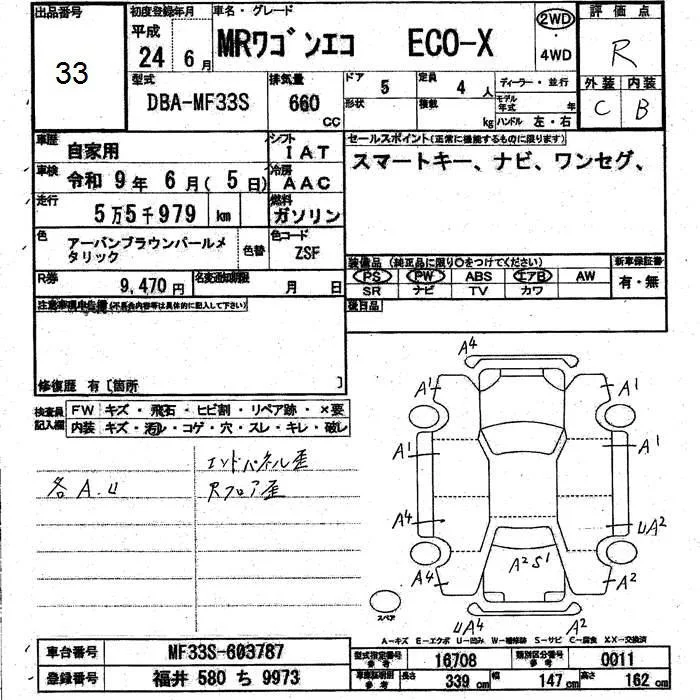 出品番号
33
初度登録年月
平成
24 6月
車名・グレード
MRワゴンエコ ECO-X
2WD
・
4WD
評価点
R
外装 内装
C B
型式
DBA-MF33S
排気量
660
CC
ドア
5
形状
定員
4 人
積載
kg
ディーラー・並行
モデル年式 年
ハンドル 左・右
車歴
自家用
シフト
IAT
車検
令和 9年 6月(5日)
冷房
AAC
走行
5万5千979 km
燃料
ガソリン
色
アーバンブラウンパールメタリック
色替
色コード
ZSF
R券
9,470円
名変通知期限
月 日
セールスポイント(正常に機能するものに限ります)
スマートキー、ナビ、ワンセグ、
装備品(純正品に限り○をつけてください)
PS PW ABS エアB AW
SR ナビ TV カワ
新車保証書
有・無
後日品
注意事項申告欄(不具合内容等は具体的に記入して下さい)
修復歴 有〔箇所 〕
検査員記入欄
FW キズ・飛石・ヒビ割・リペア跡・×要
内装 キズ・汚レ・コゲ・穴・スレ・キレ・破レ
エンドパネル歪
各A.U Rフロア歪
A4
A1 A1
A1 A1
A4 UA2
A4 A2S1 A2
UA4 A2
スペア
A-キズ E-エクボ U-凹み W-補修跡 S-サビ C-腐食 XX-交換済
車台番号 MF33S-603787
登録番号 福井 580 ち 9973
型式指定番号 参考 16708
類別区分番号 参考 0011
車庫証明用 参考 長さ 339cm 幅 147cm 高さ 162cm